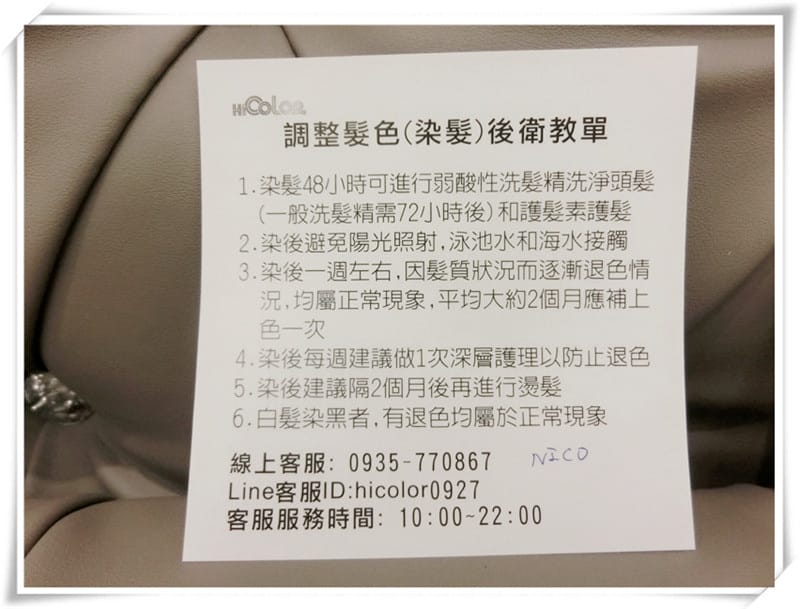 HiCOLOR
調整髮色(染髮)後衛教單
1.染髮48小時可進行弱酸性洗髮精洗淨頭髮
(一般洗髮精需72小時後)和護髮素護髮
2.染後避免陽光照射,泳池水和海水接觸
3.染後一週左右,因髮質狀況而逐漸退色情
況,均屬正常現象,平均大約2個月應補上
色一次
4.染後每週建議做1次深層護理以防止退色
5.染後建議隔2個月後再進行燙髮
6.白髮染黑者,有退色均屬於正常現象
線上客服: 0935-770867 NICO
Line客服ID:hicolor0927
客服服務時間: 10:00~22:00